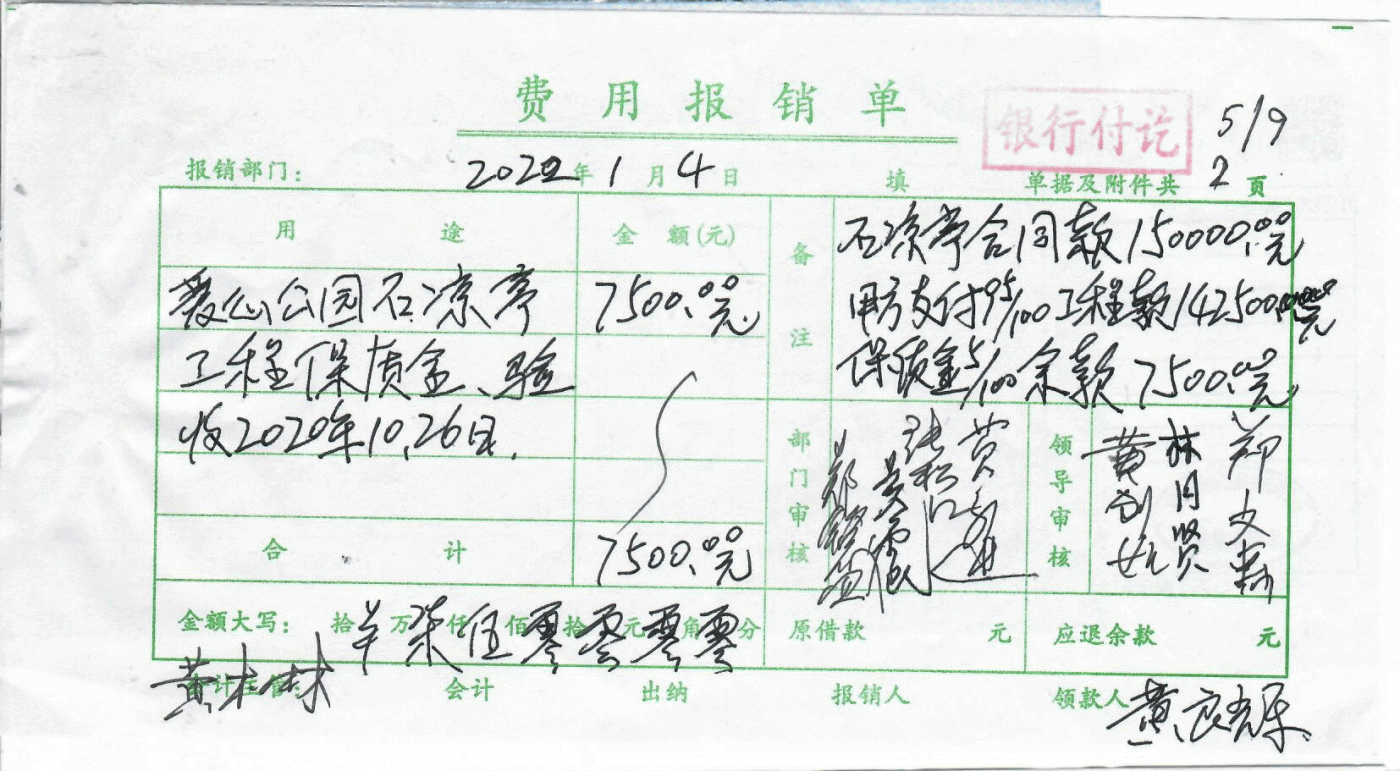 费用报销单
银行付讫
5/9
报销部门： 2022年1月4日 填 单据及附件共 2 页
用途 金额(元) 备注
石凉亭合同款150000.00元
公园石凉亭 7500.00元
甲方支付95/100工程款142500.00元
工程保质金、验
保质金5/100余款7500.00元
收2020年10.26日.
部门审核 领导审核
黄 林月贤 郑文
合计 7500.00元
金额大写： 拾 万 仟 佰 拾 元 角 分 柒伍零零零零
原借款 元 应退余款 元
会计主管： 会计 出纳 报销人 领款人
黄 林 黄良